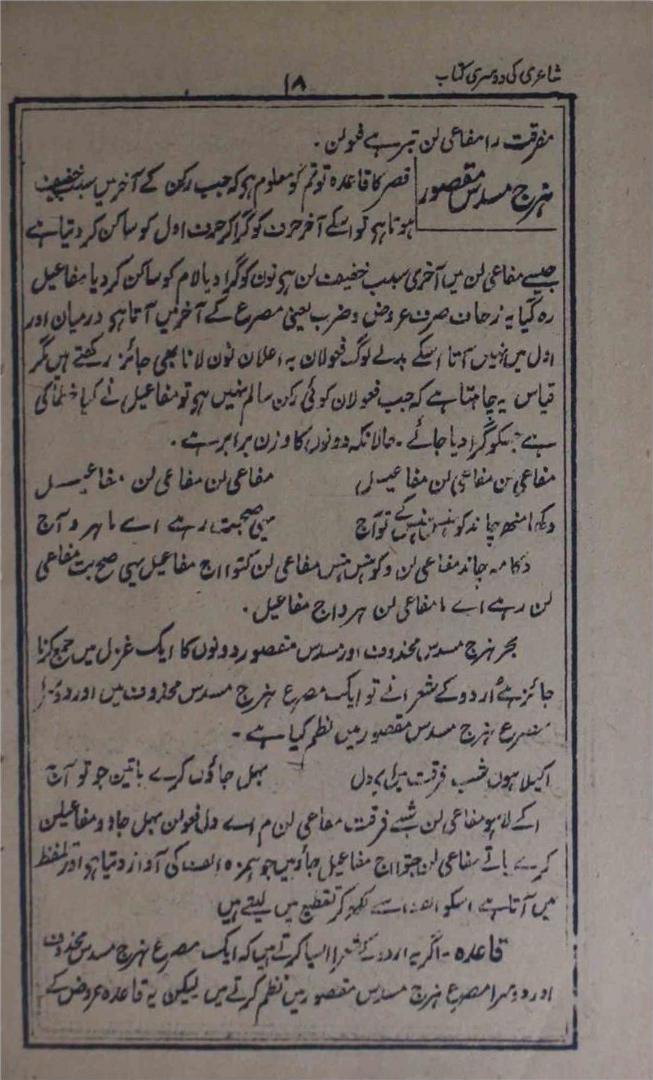 شاعری کی دوسری کتاب
۱۸
مفرقت را مفاعی لن تبر ہے فعولن۔
ہزج مسدس مقصور
قصر کا قاعدہ تو تم کو معلوم ہو کہ جب رکن کے آخر میں سبب خفیف
ہوتا ہو تو اسکے آخر حرف کو گرا کر حرف اول کو ساکن کر دیتا ہے
جیسے مفاعی لن میں آخری سبب خفیف لن ہو نون کو گرا دیا لام کو ساکن کر دیا مفاعیل
رہ گیا یہ زحاف صرف عروض و ضرب یعنی مصرع کے آخر میں آتا ہو درمیان اور
اول میں نہیں آتا اسکے بدلے لوگ فعولان بہ اعلان نون لانا بھی جائز رکھتے ہیں مگر
قیاس یہ چاہتا ہے کہ جب فعولان کوئی رکن سالم نہیں ہو تو مفاعیل نے کیا خطا کی
ہے جسکو گرا دیا جائے۔ حالانکہ دونوں کا وزن برابر ہے۔
مفاعی لن مفاعی لن مفاعیل مفاعی لن مفاعی لن مفاعیل
دکھا منھ چاند کو ہنس ہنس کے تو آج یہی صحبت رہے اے ماہرو آج
دکا مہ چاند مفاعی لن و کو ہنس ہنس مفاعی لن کتو ااج مفاعیل یہی صح بت مفاعی
لن رہے اے ما مفاعی لن ہر و ااج مفاعیل۔
بحر ہزج مسدس محذوف اور مسدس مقصور دونوں کا ایک غزل میں جمع کرنا
جائز ہے اردو کے شعرا نے تو ایک مصرع ہزج مسدس محذوف میں اور دوسرا
مصرع ہزج مسدس مقصور میں نظم کیا ہے۔
اکیلا ہوں شب فرقت میں اے دل بہل جاؤں کرے باتیں جو تو آج
اکے لا ہو مفاعی لن شبے فرقت مفاعی لن م اے دل فعولن بہل جاوو مفاعیلن
کرے باتے مفاعی لن جتو ااج مفاعیل جاؤ میں جو ہمزہ الف کی آواز دیتا ہو اور تلفظ
میں آتا ہے اسکو الف سے لکھ کر تقطیع میں لیتے ہیں
قاعدہ۔ اگر یہ اردو کے شعرا ایسا کرتے ہیں کہ ایک مصرع ہزج مسدس محذوف
اور دوسرا مصرع ہزج مسدس مقصور میں نظم کرتے ہیں لیکن یہ قاعدہ عروض کے